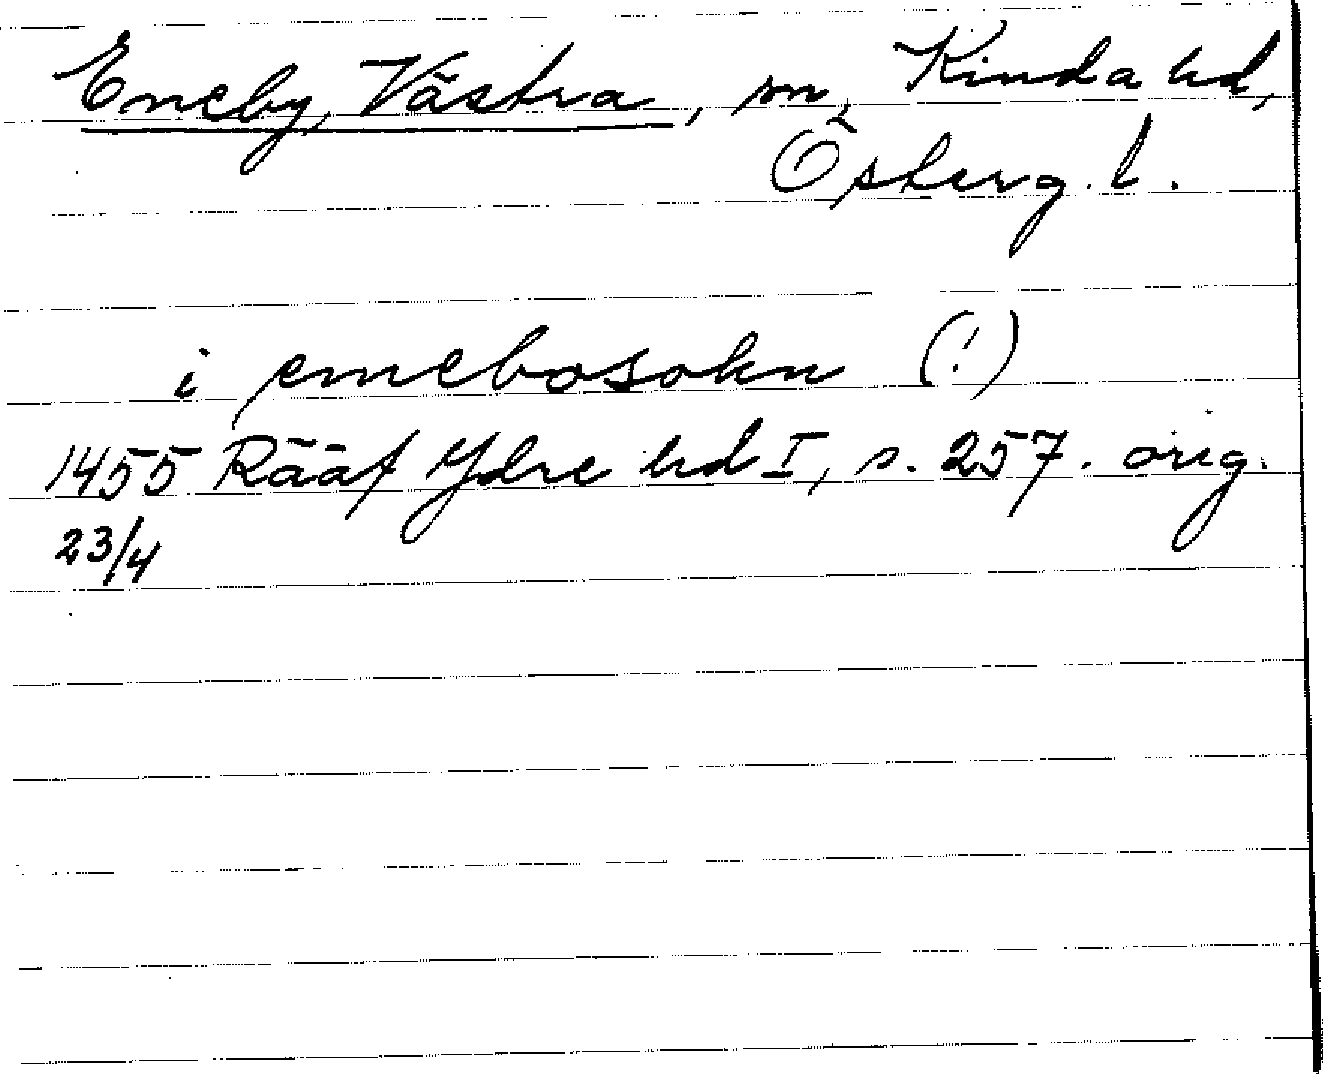 Eneby, Västra, sn, Kinda hd,
Österg. l.
i enebosokn (!)
1455 Rääf Ydre hd I, s. 257. orig.
23/4